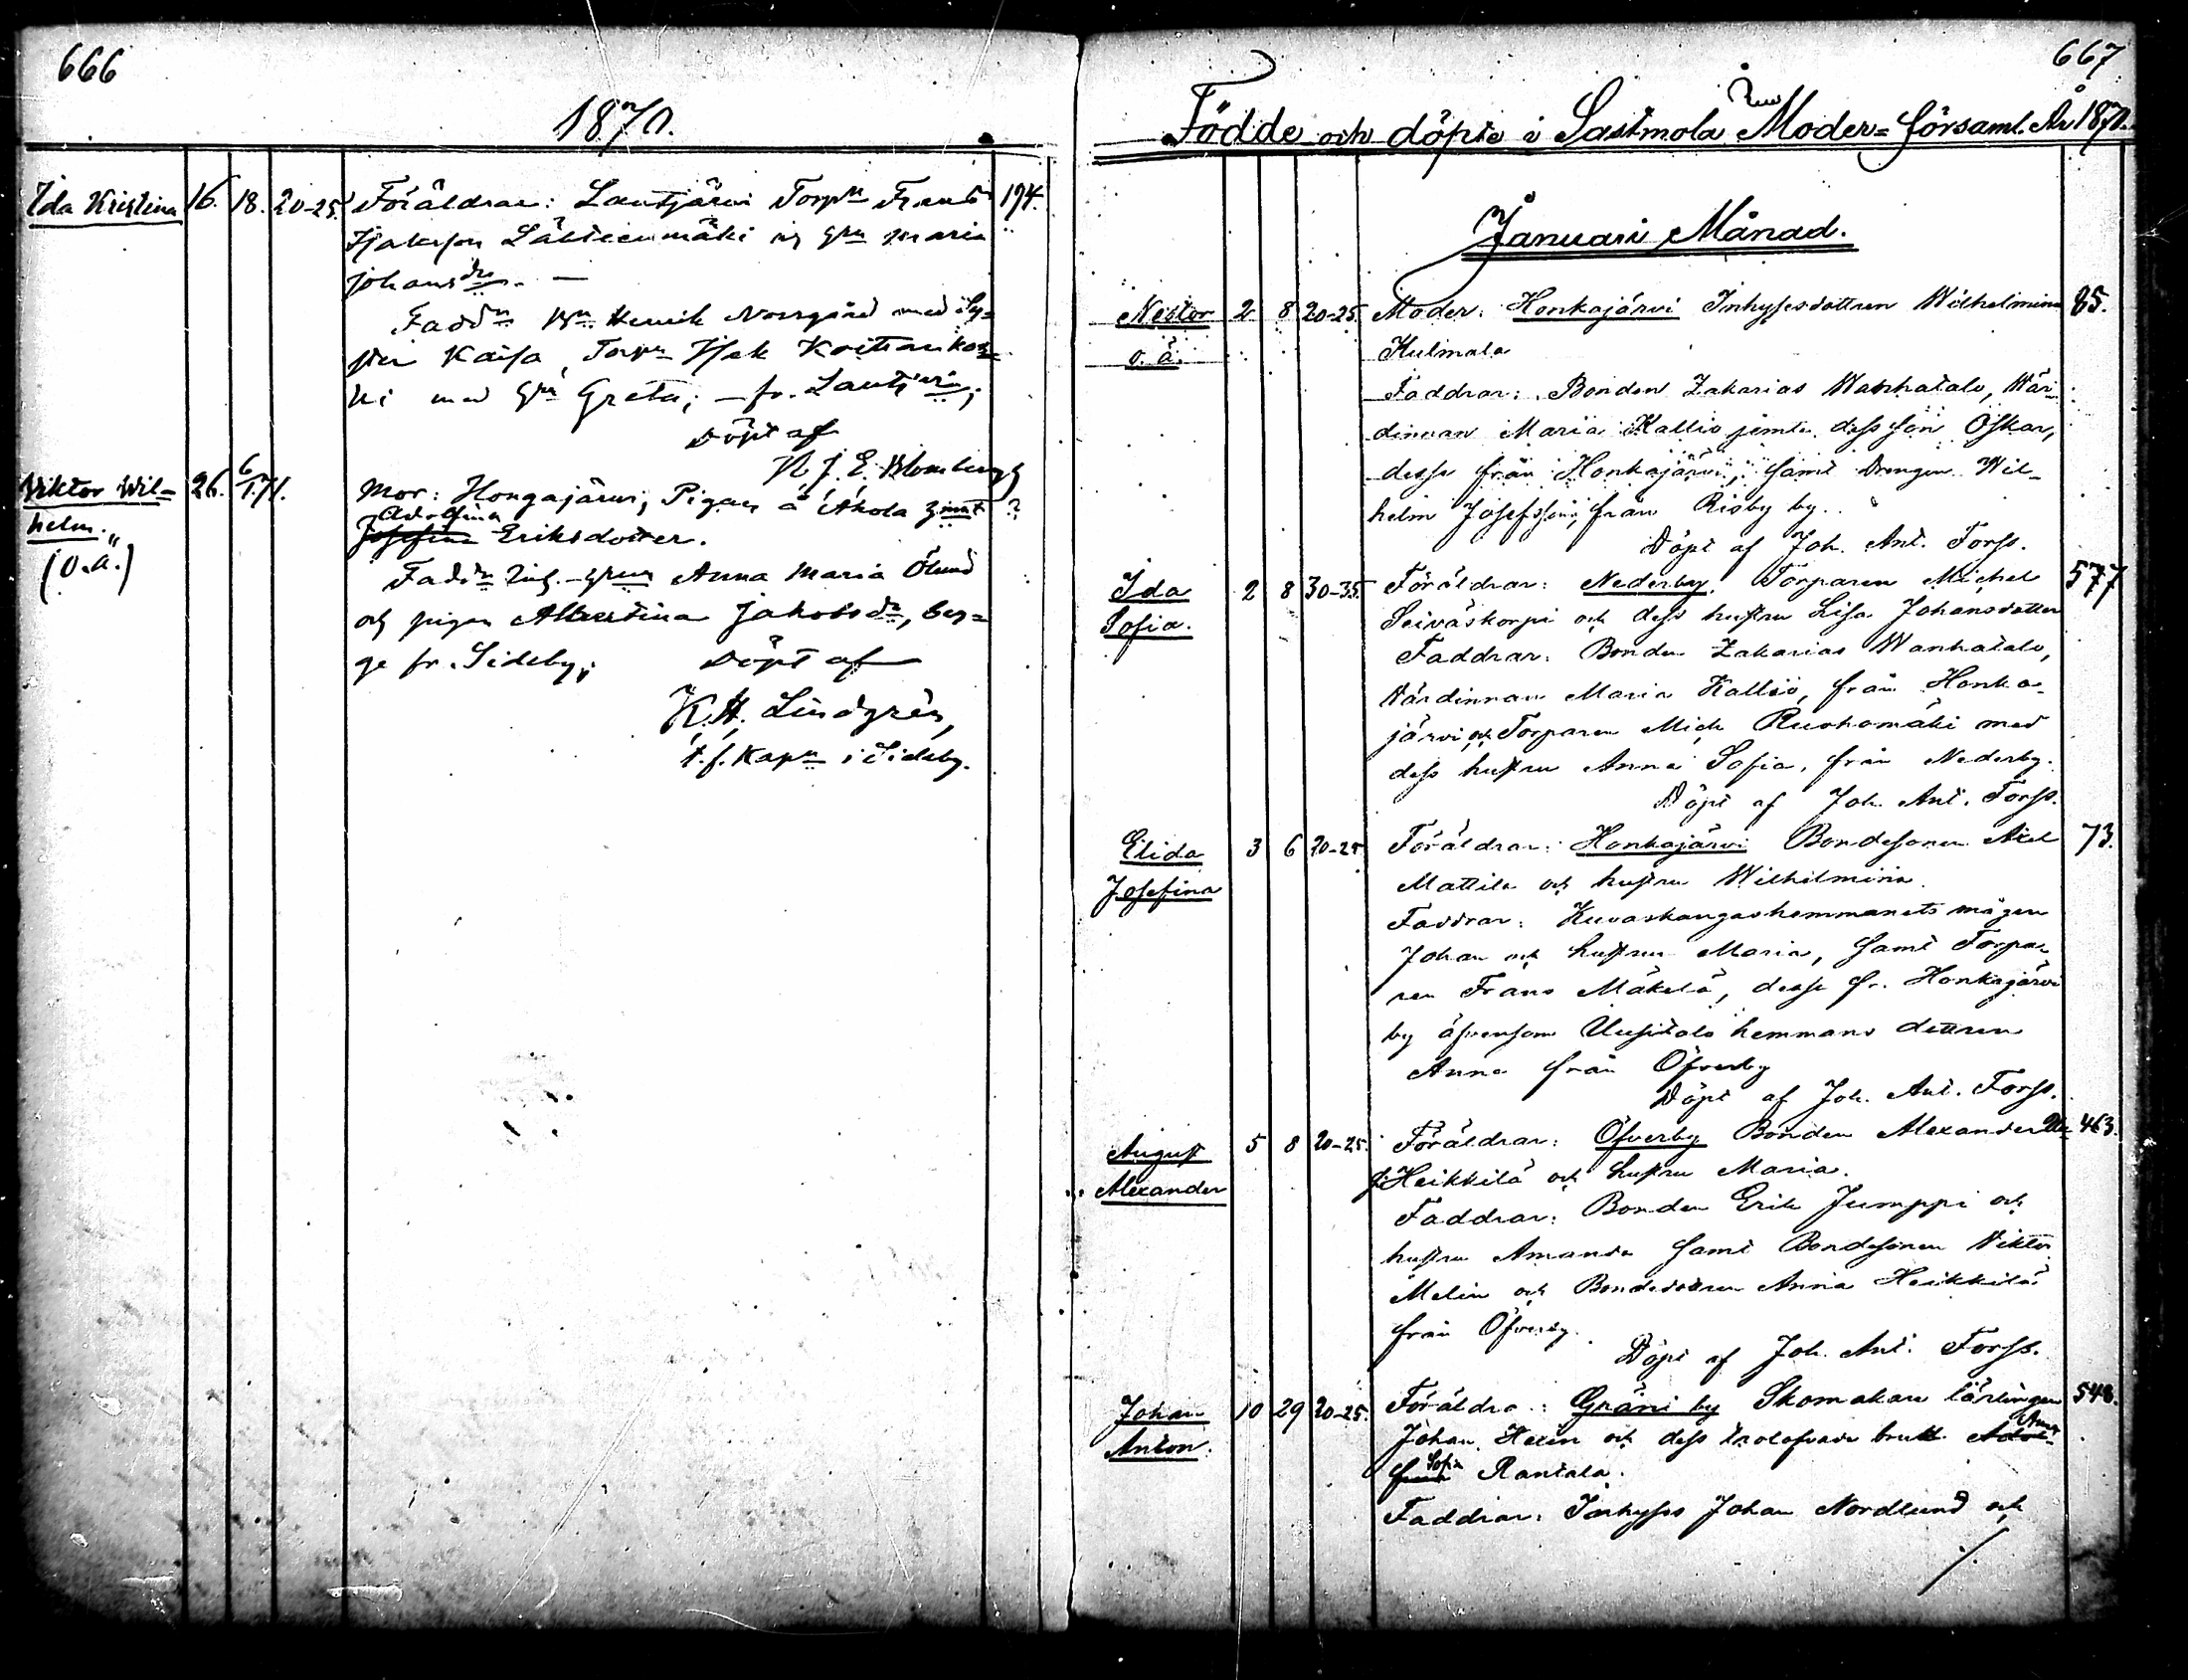 666
1870.
Ida Kristina 16. 18. 20-25. Föräldrar: Lautjärvi Torpn Frans 194.
Isaksson Lähteenmäki och hn Maria
Johansdr. —
Faddr Bn Henrik Norrgård med Sy=
ster Kaisa, Torpn Isak Koitankos=
ki med hu Greta; — fr. Lautjärvi;
Döpt af
K. J. E. Blomberg
Viktor Wil= 26. 6/1.71. Mor: Hongajärvi, Pigan å Ahola hemt ?
helm. Adolfina
(o.ä.) Josefina Eriksdotter.
Faddr Anna Maria Ölund
och pigan Albertina Jakobsdr, beg=
ge fr. Sideby; Döpt af
K. H. Lindgrén,
t. f. Kapn i Sideby.
667
Födde och döpte i Sastmola Moder=församl. År 1871.
Januari Månad.
Nestor 2 8 20-25. Moder: Honkajärvi Inhysesdottren Wilhelmina 85.
o. ä. Kulmala
Faddrar: Bonden Zakarias Wanhatalo, Wär-
dinnan Maria Kallio jemte dess son Oskar,
desse från Honkajärvi, samt Drengen Wil-
helm Josefsson, från Risby by.
Döpt af Joh. Ant. Forss.
Ida 2 8 30-35. Föräldrar: Nederby Torparen Michel 577
Sofia. Seiväskorpi och dess hustru Lisa Johansdotter
Faddrar: Bonden Zakarias Wanhatalo,
Värdinnan Maria Kallio, från Honka-
järvi och Torparen Mich Ruohomäki med
dess hustru Anna Sofia, från Nederby.
Döpt af Joh. Ant. Forss.
Elida 3 6 20-25 Föräldrar: Honkajärvi Bondesonen Axel 73.
Josefina Mattila och hustru Wilhelmina.
Faddrar: Kuvaskangashemmanets mågen
Johan och hustru Maria, samt Torpa-
ren Frans Mäkelä, desse fr. Honkajärvi
by äfvensom Uusitalo hemmans dottren
Anna från Öfverby
Döpt af Joh. Ant. Forss.
August 5 8 20-25. Föräldrar: Öfverby Bonden Alexander 463.
Alexander Heikkilä och hustru Maria.
Faddrar: Bonden Erik Jumppi och
hustru Amanda samt Bondesonen Viktor
Melin och Bondedottren Anna Heikkilä
från Öfverby.
Döpt af Joh. Ant. Forss.
Johan 10 29 20-25. Föräldra: Gräni by Skomakare lärlingen 548.
Anton. Johan Hexén och dess trolofvade brud Anna
Sofia Rantala.
Faddrar: Inhyses Johan Nordlund och
./.